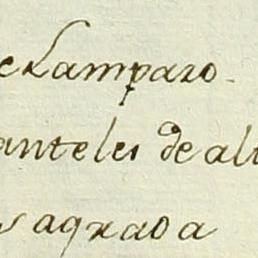 e Lamparo
anteles de alt
s agrada